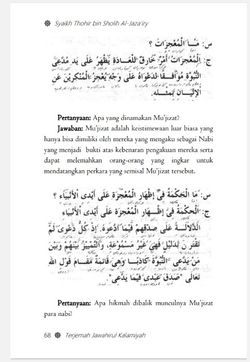 Syaikh Thohir bin Sholih Al-Jaza'iry
س: مَا الْمُعْجِزَاتُ ؟
ج: الْمُعْجِزَاتُ أَمْرٌ خَارِقٌ لِلْعَادَةِ يَظْهَرُ عَلَى يَدِ مُدَّعِي
النُّبُوَّةِ مُوَافِقًا لِدَعْوَاهُ عَلَى وَجْهٍ يُعْجِزُ الْمُنْكِرِيْنَ عَنِ
الْإِتْيَانِ بِمِثْلِهِ.
Pertanyaan: Apa yang dinamakan Mu'jizat?
Jawaban: Mu'jizat adalah keistimewaan luar biasa yang
hanya bisa dimiliki oleh mereka yang mengaku sebagai Nabi
yang menjadi bukti atas kebenaran pengakuan mereka serta
dapat melemahkan orang-orang yang ingkar untuk
mendatangkan perkara yang semisal Mu'jizat tersebut.
س: مَا الْحِكْمَةُ فِيْ إِظْهَارِ الْمُعْجِزَةِ عَلَى أَيْدِى الْأَنْبِيَاءِ ؟
ج: الْحِكْمَةُ فِيْ إِظْهَارِ الْمُعْجِزَةِ عَلَى أَيْدِى الْأَنْبِيَاءِ
الدَّلَالَةُ عَلَى صِدْقِهِمْ فِيْمَا ادَّعَوْهُ. إِذْ كُلُّ دَعْوَى لَمْ
تَقْتَرِنْ بِدَلِيْلٍ فَهِيَ غَيْرُ مَسْمُوْعَةٍ، وَالتَّمْيِيْزُ بَيْنَهُمْ وَبَيْنَ
مَنْ يَدَّعِي النُّبُوَّةَ كَاذِبًا وَهِيَ قَائِمَةٌ مَقَامَ قَوْلِ اللهِ
صَدَقَ عَبْدِيْ فِيْمَا يَدَّعِي.
Pertanyaan: Apa hikmah dibalik munculnya Mu'jizat
para nabi?
68 Terjemah Jawahirul Kalamiyah